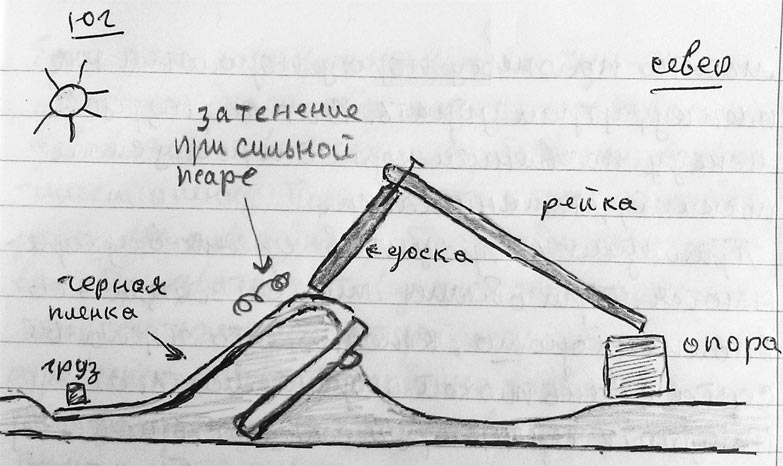 юг
север
затенение
при сильной
жаре
рейка
доска
черная
пленка
груз
опора